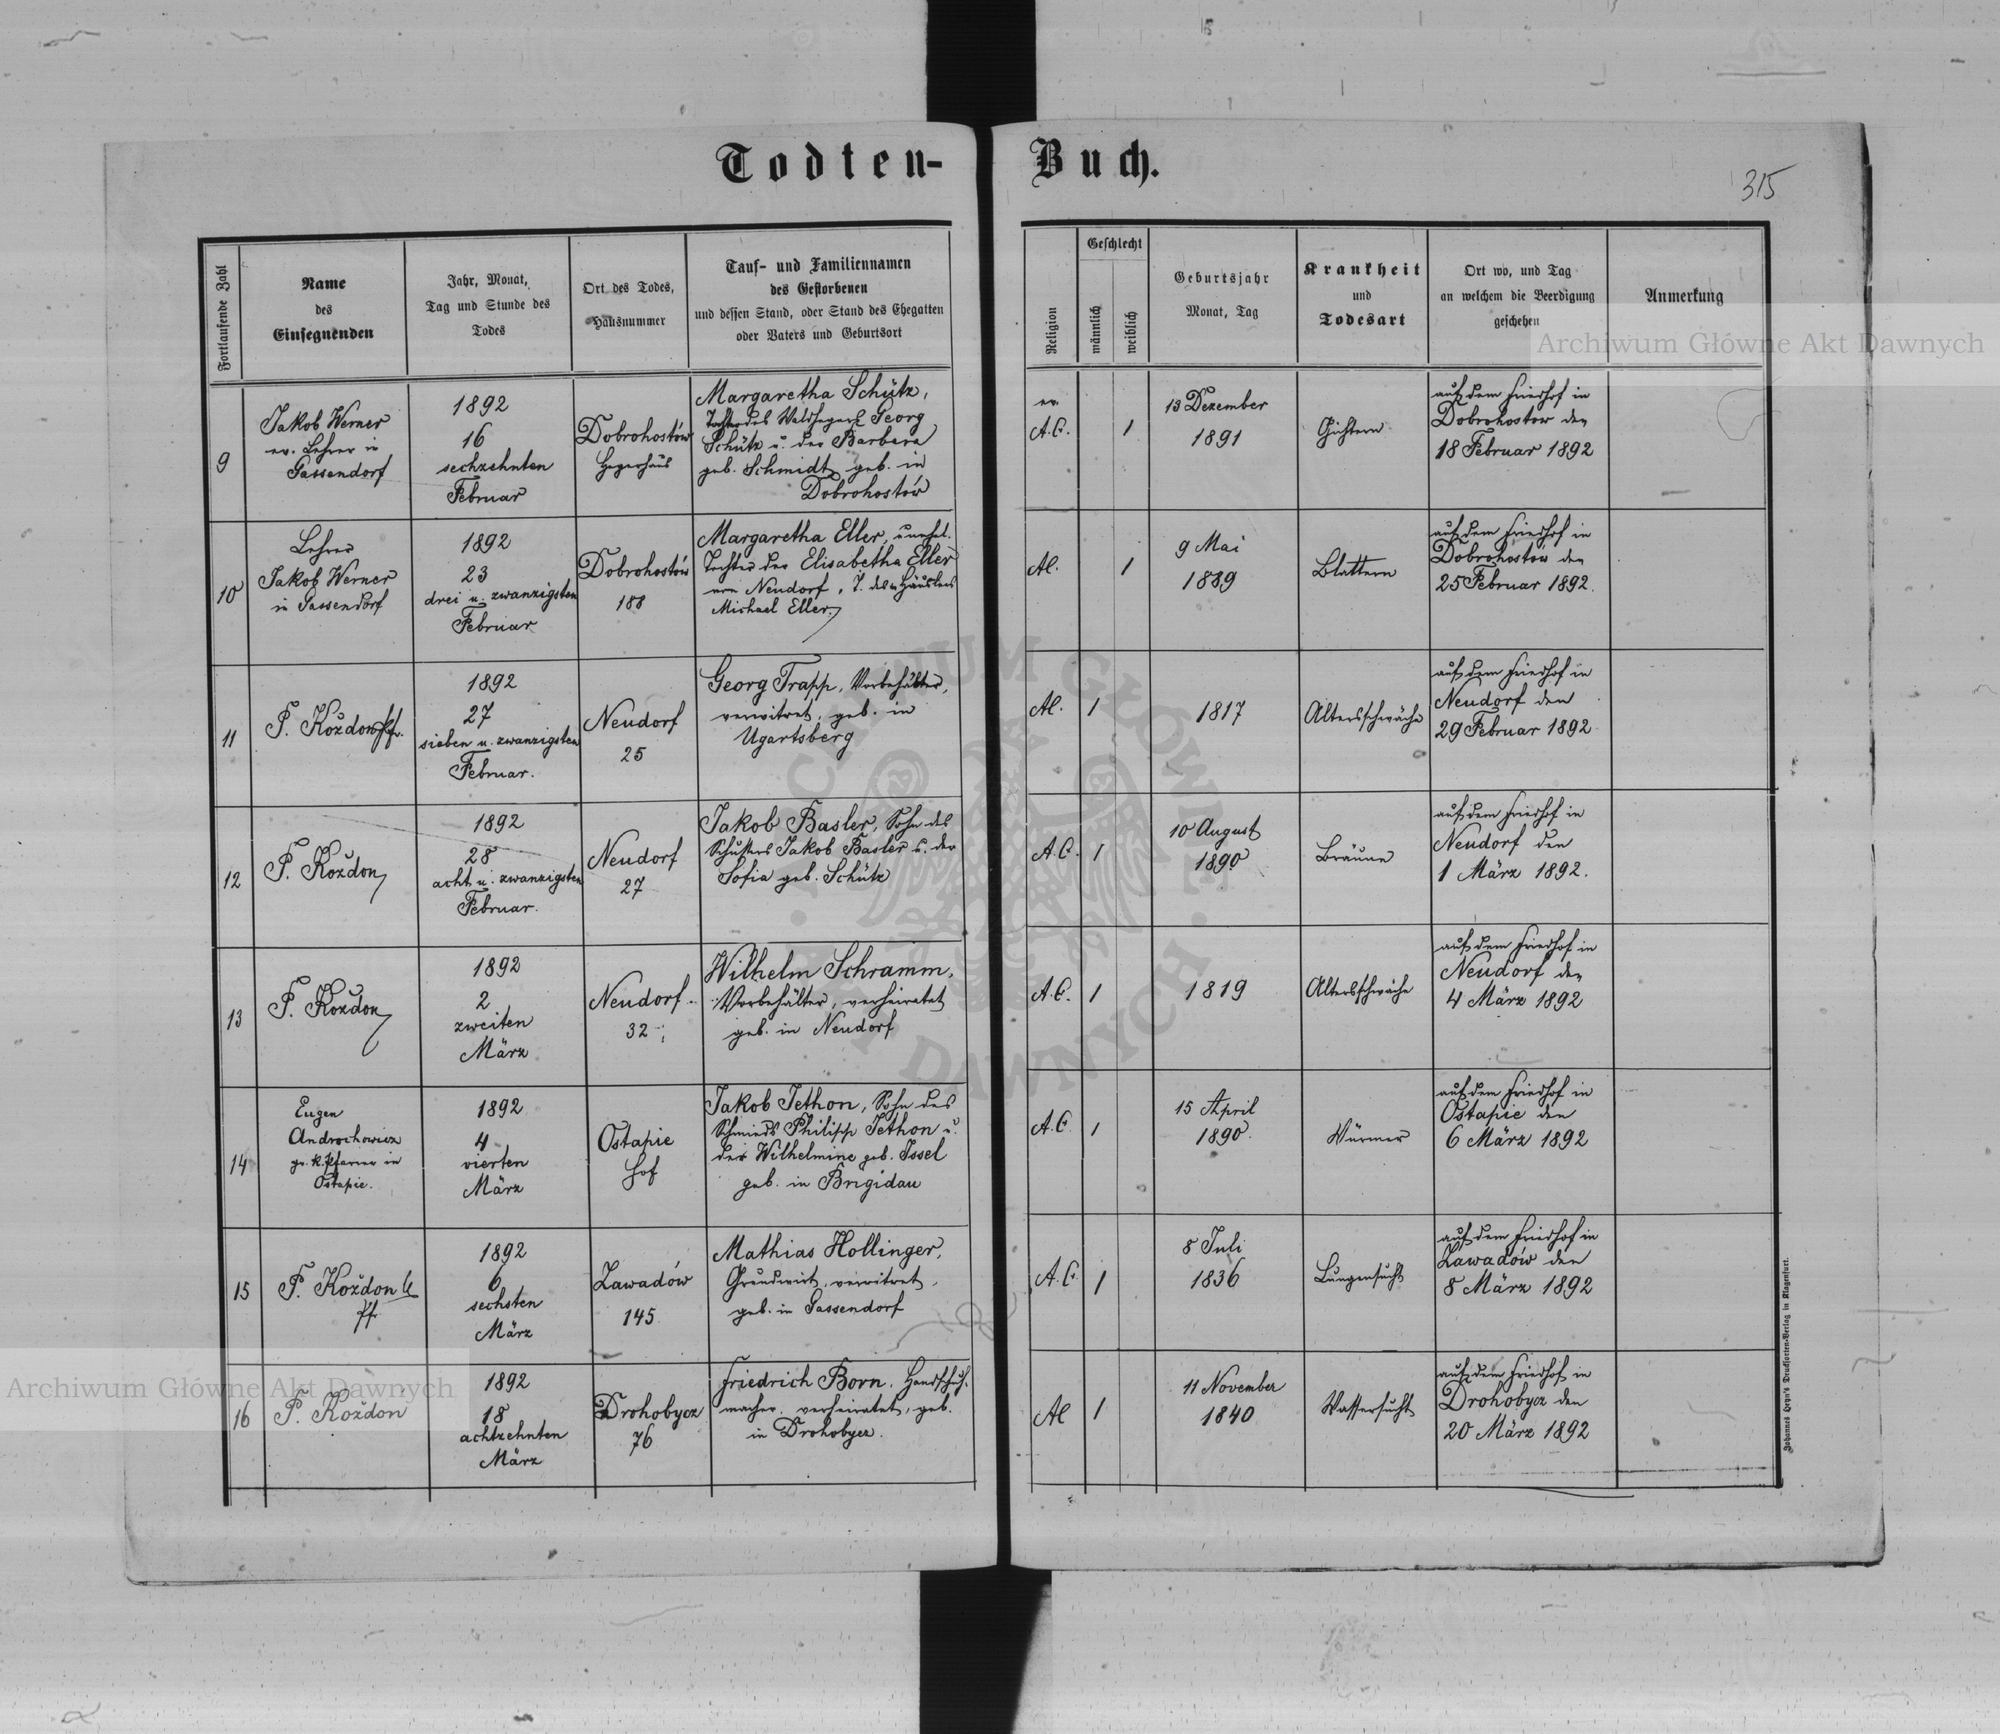 Todten-Buch.
315
Fortlaufende Zahl
Name
des
Einsegnenden
Jahr, Monat,
Tag und Stunde des
Todes
Ort des Todes,
Hausnummer
Tauf- und Familiennamen
des Gestorbenen
und dessen Stand, oder Stand des Ehegatten
oder Vaters und Geburtsort
Religion
Geschlecht
männlich
weiblich
Geburtsjahr
Monat, Tag
Krankheit
und
Todesart
Ort wo, und Tag
an welchem die Beerdigung
geschehen
Anmerkung
9
Jakob Werner
ev. Lehrer in
Gassendorf
1892
16
sechzehnten
Februar
Dobrohostów
Hegerhaus
Margaretha Schütz,
Tochter des Waldhegers Georg
Schütz u. der Barbara
geb. Schmidt geb. in
Dobrohostów
ev.
A.C.
1
13 Dezember
1891
Gichtern
auf dem Friedhof in
Dobrohostow den
18 Februar 1892
10
Lehrer
Jakob Werner
in Gassendorf
1892
23
drei u. zwanzigsten
Februar
Dobrohostów
188
Margaretha Eller, unehel.
Tochter der Elisabetha Eller
von Neudorf, T. des Häuslers
Michael Eller.
AC.
1
9 Mai
1889
Blattern
auf dem Friedhof in
Dobrohostów den
25 Februar 1892.
11
F. Koždon Pf.
1892
27
sieben u. zwanzigsten
Februar.
Neudorf
25
Georg Trapp, Vorbehälter,
verwitwet, geb. in
Ugartsberg
AC.
1
1817
Altersschwäche
auf dem Friedhof in
Neudorf den
29 Februar 1892
12
F. Koždon
1892
28
acht u. zwanzigsten
Februar.
Neudorf
27
Jakob Basler, Sohn des
Schusters Jakob Basler u. der
Sofia geb. Schütz
A.C.
1
10 August
1890
Bräune
auf dem Friedhof in
Neudorf den
1 März 1892.
13
F. Koždon
1892
2
zweiten
März
Neudorf
32
Wilhelm Schramm,
Vorbehälter, verheiratet
geb. in Neudorf
A.C.
1
1819
Altersschwäche
auf dem Friedhof in
Neudorf den
4 März 1892
14
Eugen
Androchowicz
gr. k. Pfarrer in
Ostapie.
1892
4
vierten
März
Ostapie
Hof
Jakob Jethon, Sohn des
Schmieds Philipp Jethon u.
der Wilhelmine geb. Issel
geb. in Brigidau
A.C.
1
15 April
1890.
Würmer
auf dem Friedhof in
Ostapie den
6 März 1892
15
F. Koždon
Pf.
1892
6
sechsten
März
Zawadów
145
Mathias Hollinger,
Grundwirt, verwitwet,
geb. in Gassendorf
A.C.
1
8 Juli
1836
Lungensucht
auf dem Friedhof in
Zawadów den
8 März 1892
16
F. Koždon
1892
18
achtzehnten
März
Drohobycz
76
Friedrich Born, Handschuh-
macher, verheiratet, geb.
in Drohobycz.
AC
1
11 November
1840
Wassersucht
auf dem Friedhof in
Drohobycz den
20 März 1892
Johannes Heyn's Drucksorten-Verlag in Klagenfurt.
Archiwum Główne Akt Dawnych
Archiwum Główne Akt Dawnych
ARCHIWUM GŁÓWNE AKT DAWNYCH